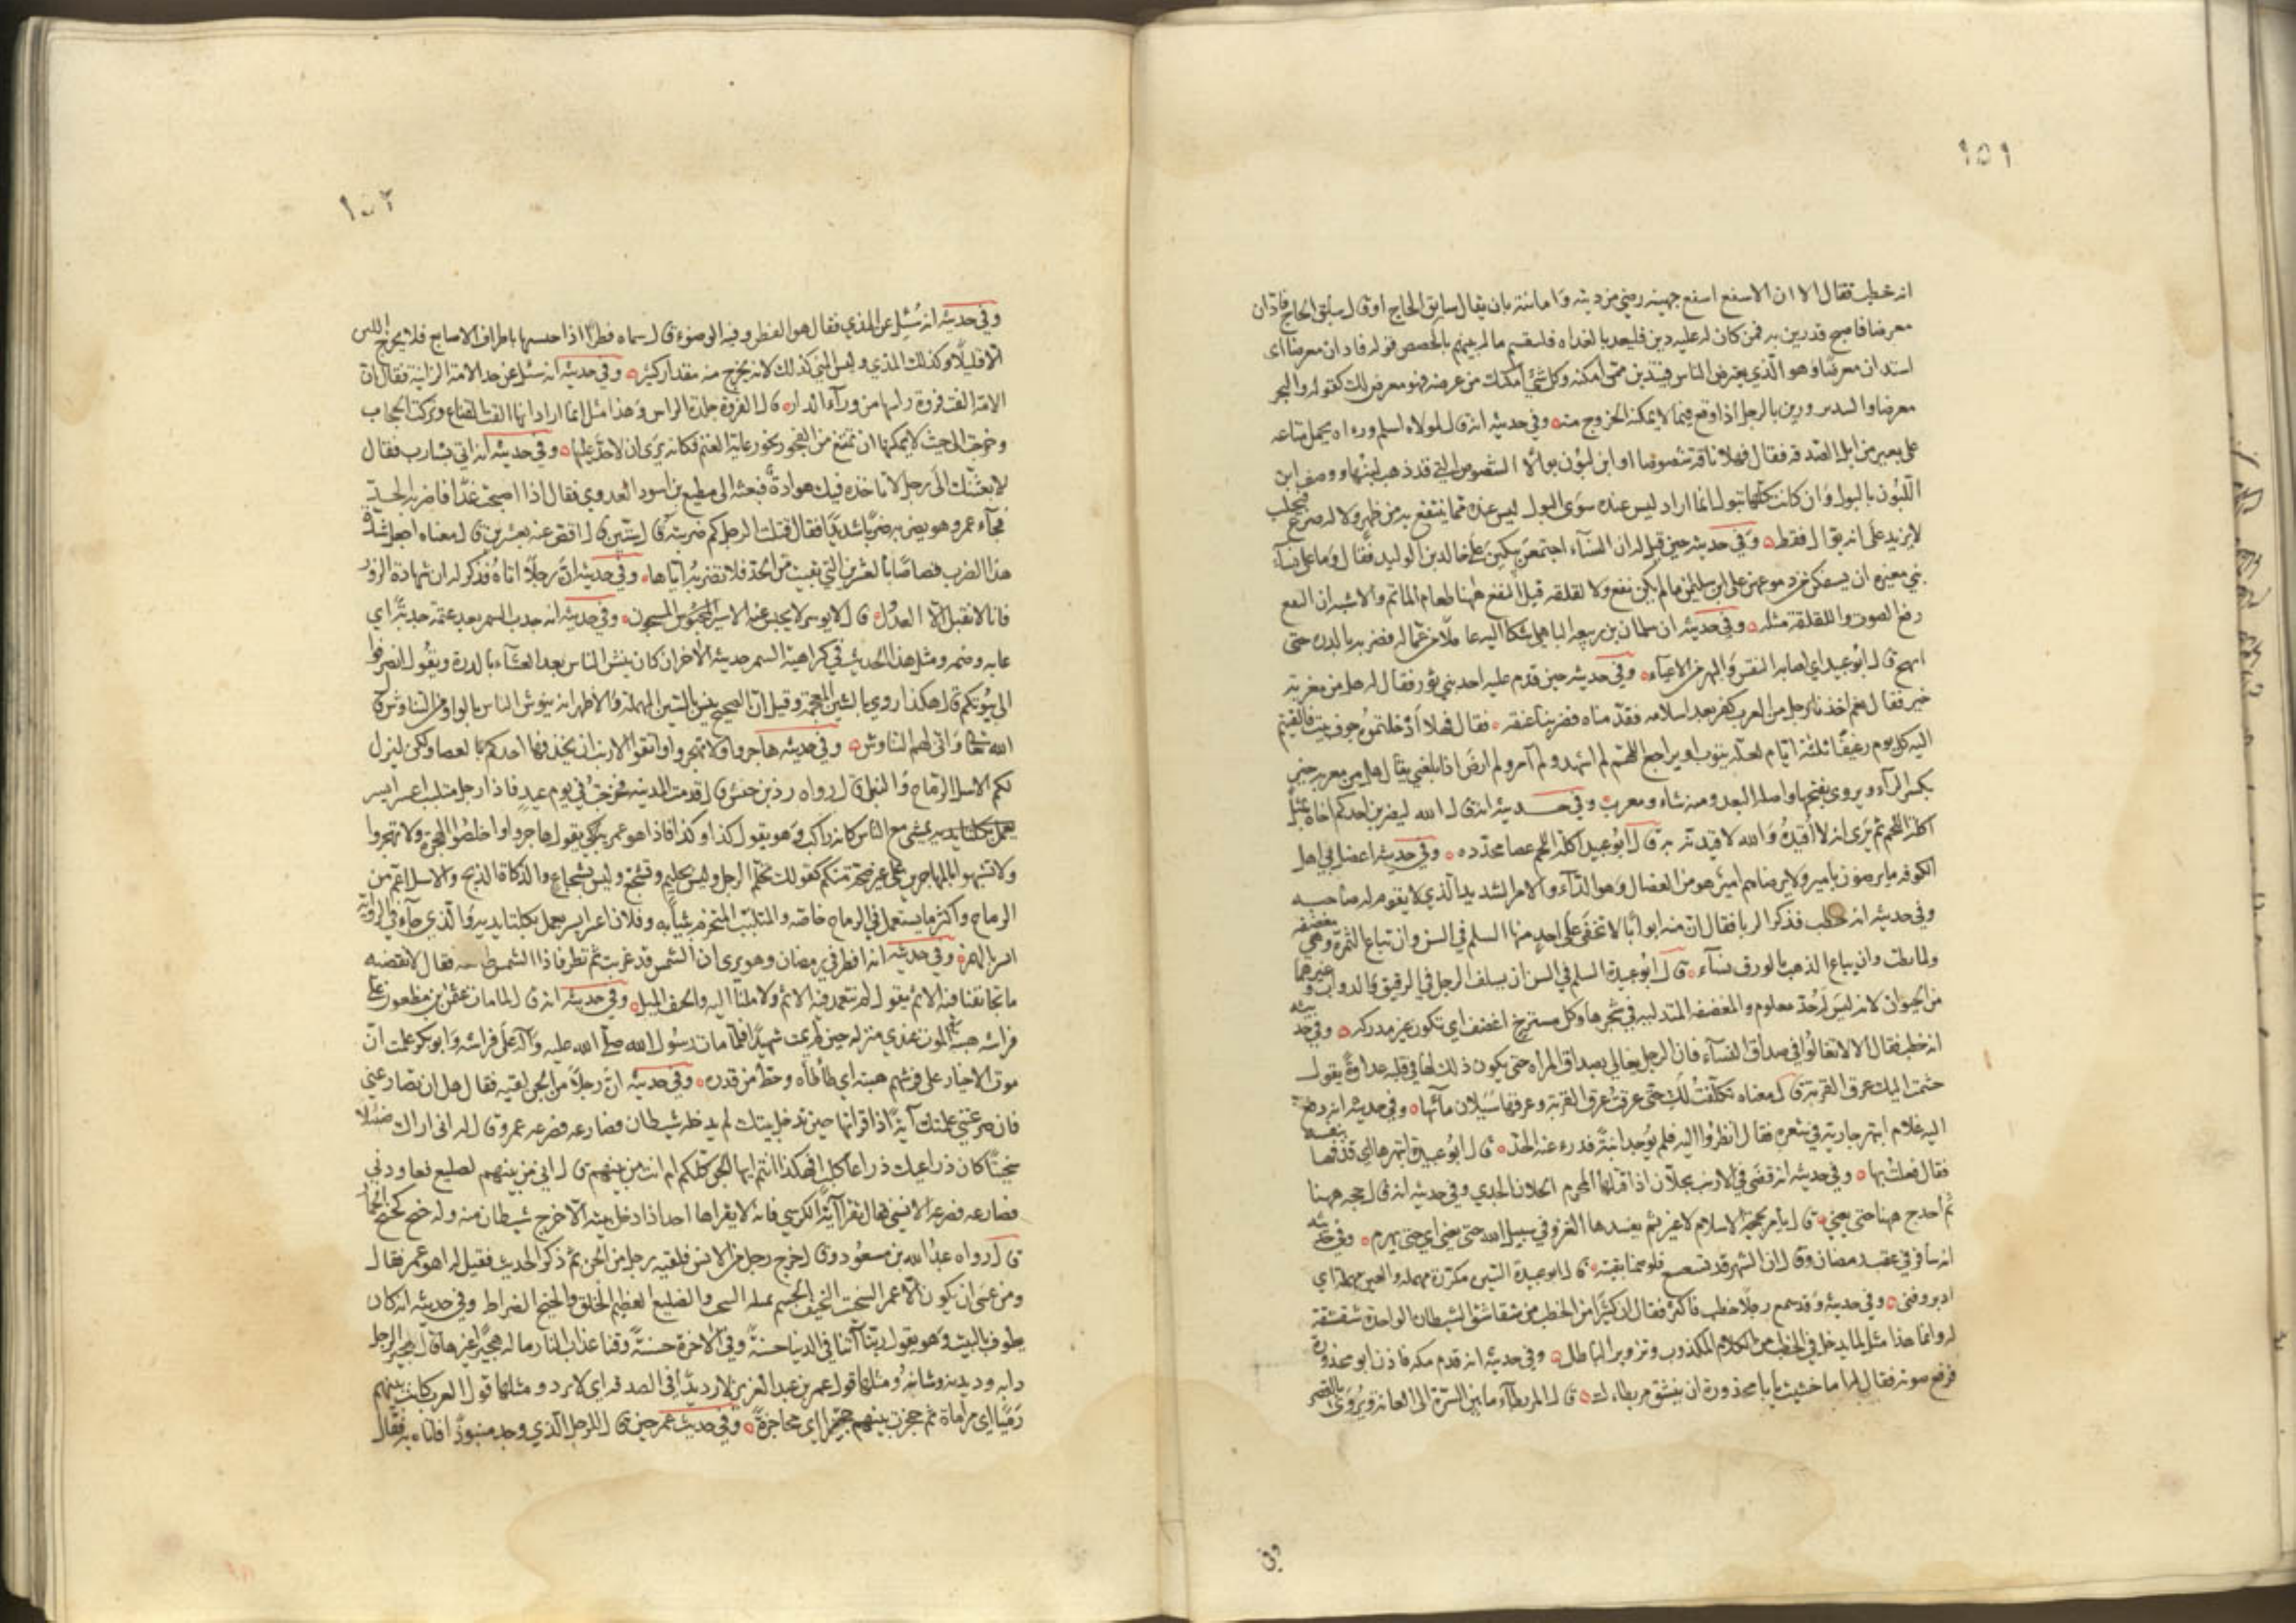 ١٥١
انه خطب فقال الا ان الاسفع اسفع جهينه رضي من دينه وامانته بان يقال سابق الحاج او قال سبق الحاج فادّان
معرضا فاصبح قد رين به فمن كان له عليه دين فليعد بالغداه فلنقسم ماله بينهم بالحصص قوله فادان معرضا اى
استدان معرضا وهو الّذي يعترض الناس فيستدين ممن امكنه وكل شئ امكنك من عرضه فهو معرض لك كقوله والبحر
معرضا والسدير ورين بالرجل اذا وقع فيما لا يمكنه الخروج منه وفي حديثه انه قال لمولاه اسلم وراه يحمل متاعه
على بعير من ابل الصدقه فقال فهلا ناقة شصوصا او ابن لبون بوالا الشصوص التي قد ذهب لبنها ووصف ابن
اللبون بالبول وان كانت كلها تبول انما اراد ليس عنده سوى البول ليس عنده مما ينتفع به من ظهر ولا له ضرع فيحلب
لا يزيد على انه بوّال فقط وفي حديثه حين قيل له ان النساء اجتمعن يبكين على خالد بن الوليد فقال وما على نساء
بني مغيره ان يسفكن من دموعهن على ابي سليمن ما لم يكن نقع ولا لقلقه قيل النقع ههنا طعام الماتم والاشبه ان النقع
رفع الصوت واللقلقة مثله وفي حديثه ان سلمان بن ربيعه الباهلي شكا اليه عاملا من عماله فضربه بالدره حتى
انهج قال ابو عبيد اي اصابه النفس والبهر من الاعياء وفي حديثه حين قدم عليه احد بني ثور فقال له هل من مغربة
خبر فقال نعم اخذنا رجلا من العرب كفر بعد اسلامه فقدّمناه فضربنا عنقه فقال فهلا ادخلتموه جوف بيت فالقيتم
اليه كل يوم رغيفا ثلثة ايام لعله يتوب او يراجع اللهم لم اشهد ولم آمر ولم ارض اذ بلغني يقال هل من مغربة خبر
بكسر الراء ويروى بفتحها واصله البعد ومنه شاو مغرب وفي حديثه انه قال الله ليضربن احدكم اخاه بمثل
اكلة اللحم ثم يرى انه لا اقيده والله لاقيدنه به قال ابو عبيد اكلة اللحم عصا محدّده وفي حديثه اعضل بي اهل
الكوفه ما يرضون بامير ولا يرضاهم امير هو من العضال وهو الداء والامر الشديد الذي لا يقوم له صاحبه
وفي حديثه انه خطب فذكر الربا فقال ان منه ابوابا لا تخفى على احد منها السلم في السن وان تباع الثمرة وهي مغضفه
ولما تطب وان يباع الذهب بالورق نساء قال ابو عبيدة السلم في السن ان يسلف الرجل في الرقيق والدواب وغيرهما
من الحيوان لانه ليس له حدّ معلوم والمغضفه المتدليه في شجرها وكل مسترخ اغضف اي تكون غير مدركه وفي حديثه
انه خطب فقال الا لا تغالوا في صداق النساء فان الرجل يغالي بصداق المراه حتى يكون ذلك لها في قلبه عداوة يقول
جشمت اليك عرق القربة قال معناه تكلّفت لك حتى عرقت عرق القربة وعرقها سيلان مائها وفي حديثه انه رفع
اليه غلام ابتهر جارية في شعره فقال انظروا اليه فلم يوجد انبت فدرء عنه الحدّ قال ابو عبيدة ابتهرها اي قذفها بنفسه
فقال فعلت بها وفي حديثه انه قضى في الارنب بحلان اذا قتلها المحرم الحلان الجدي وفي حديثه انه قال حجه ههنا
ثم احدج ههنا حتى يعني قال يامر بحجة الاسلام لا غير ثم بعدها الغزو في سبيل الله حتى يعني اي حتى يهرم وفي حديثه
انه سافر في عقب رمضان وقال ان الشهر قد تسعسع فلو صمنا بقيته قال ابو عبيدة السين مكررة مهمله والعين مهملة اي
ادبر وفنى وفي حديثه وقد سمع رجلا خطب فاكثر فقال ان كثيرا من الخطب من شقاشق الشيطان الواحدة شقشقة
له وانما هذا مثل لما يدخل في الخطب من الكلام المكذوب وتزوير الباطل وفي حديثه انه قدم مكه فاذن ابو محذورة
فرفع صوته فقال له اما خشيت يا ابا محذورة ان ينشق مريطاءك قال المريطاء ما بين السرّة الى العانة ويروى بالقصر
وفي
١٥٢
وفي حديثه انه سُئل عن المذي فقال هو الفطر وفيه الوضوء قال سماه فطرا اذا حسها باطراف الاصابع فلا يخرج اللبن
الا قليلا وكذلك المذي وليس المني كذلك لانه يخرج منه مقدار كثير وفي حديثه انه سئل عن حد الامة الزانية فقال ان
الامة القت فروة راسها من وراء الدار قال الفروة جلدة الراس وهذا مثل انما اراد انها القت القناع وتركت الحجاب
وخرجت الى حيث لا يمكنها ان تمتنع من الفجور نحو رعاية الغنم فكانه يرى ان لا حدّ عليها وفي حديثه انه اتي بشارب فقال
لابعثنك الى رجل لا تاخذه فيك هوادة فبعثه الى مطيع بن اسود العدوي فقال اذا اصبحت غدا فاضربه الحدّ
فجاء عمر وهو يضربه ضربا شديدا فقال قتلت الرجل كم ضربته قال ستين قال اقصّ عنه بعشرين قال معناه اجعل شدّة
هذا الضرب قصاصا بالعشرين التي بقيت من الحدّ فلا تضربه اياها وفي حديثه انّ رجلا اتاه فذكر له ان شهادة الزور
فانا لا نقبل الا العدول قال لا يوسر لا يحبس عنه الاسير المحبوس المسجون وفي حديثه انه جدب السمر بعد عتمة جدبه اي
عابه وذمه ومثل هذا الحديث في كراهية السمر حديثه الآخر انه كان ينش الناس بعد العشاء بالدرة ويقول انصرفوا
الى بيوتكم قال هكذا روي بالشين المعجمة وقيل ان الصحيح ينس بالسين المهملة والاظهر انه ينوش الناس بالواو من التناوش قال
الله تعالى وانى لهم التناوش وفي حديثه هاجروا ولا تهجروا واتقوا الارنب ان يحذفها احدكم بالعصا ولكن ليذك
لكم الاسل الرماح والنبل قال رواه زر بن حبيش قال قدمت المدينه فخرجت في يوم عيد فاذا رجل متلبب اعسر ايسر
يعمل بكلتا يديه يمشي مع الناس كانه راكب وهو يقول كذا وكذا فاذا هو عمر يقول هاجروا واخلصوا الهجرة ولا تهجروا
ولا تشبهوا بالمهاجرين على غير صحّة منكم كقولك تحلّم الرجل وليس بحليم وتشجّع وليس بشجاع والذكاة الذبح والاسل اعمّ من
الرماح واكثر ما يستعمل في الرماح خاصه والمتلبّب المتحزم بثيابه وفلان اعسر ايسر يعمل بكلتا يديه والذي جاء في الرواية
ايسر بالهمزة وفي حديثه انه افطر في رمضان وهو يرى ان الشمس قد غربت ثم نظر فاذا الشمس طالعه فقال لا نقضيه
ما تجانفنا فيه الاثم يقول لم نتعمد فيه الاثم ولا ملنا اليه والجنف الميل وفي حديثه انه قال لما مات عثمن بن مظعون على
فراشه هبته الموت عندي منزله حين لم يمت شهيدا فلما مات رسول الله صلى الله عليه وآله على فراشه وابو بكر علمت ان
موت الاخيار على فرشهم هبته اي طأطأه وحطّ من قدره وفي حديثه انّ رجلا من الجن لقيه فقال هل ان تصارعني
فان صرعتني علمتك آية اذا قراتها حين تدخل بيتك لم يدخله شيطان فصارعه فصرعه عمر وقال له اني اراك ضئيلا
شخيتا كان ذراعيك ذراعا كلب افهكذا انتم ايها الجن كلكم ام انت من بينهم قال اني من بينهم لضليع فعاودني
فصارعه فصرعه الانسي فقال تقرا آية الكرسي فانه لا يقراها احد اذا دخل بيته الا خرج شيطان منه وله خبج كخبج الحمار
قال رواه عبد الله بن مسعود وقال خرج رجل من الانس فلقيه رجل من الجن ثم ذكر الحديث فقيل له اهو عمر فقال
ومن عسى ان يكون الا عمر الشخت النحيف الجسم ومثله الشخيت والضليع العظيم الخلق والخبج الضراط وفي حديثه انه كان
يطوف بالبيت وهو يقول ربّنا آتنا في الدنيا حسنة وفي الآخرة حسنة وقنا عذاب النار ما له هجّيرى غيرها قال هجيرى الرجل
دابه وديدنه وشانه ومثلها قول عمر بن عبد العزيز لا رديدا في الصدقه اي لا ترد ومثلها قول العرب كانت بينهم
رمّيا اي مراماة ثم حجزت بينهم حجّيزا اي محاجزة وفي حديث عمر حين قال للرجل الذي وجد منبوذا فاتاه به فقال